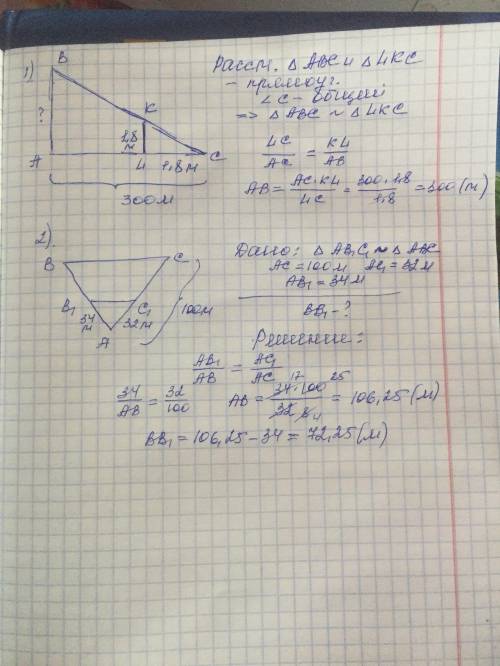 1)
B
Рассм. △ABC и △LKC
- прямоуг.
∠C - общий
=> △ABC ~ △LKC
?
K
1,8 м
A
L
1,8 м
C
300м
LC/AC = KL/AB
AB = AC·KL/LC = 300·1,8/1,8 = 300 (м)
2).
B
C
B₁
C₁
34 м
32м
100м
A
Дано: △AB₁C₁ ~ △ABC
AC = 100м AC₁ = 32м
AB₁ = 34м
BB₁ - ?
Решение:
AB₁/AB = AC₁/AC
34/AB = 32/100
AB = 34·100/32 = 106,25 (м)
17 25
8 4
BB₁ = 106,25 - 34 = 72,25 (м)